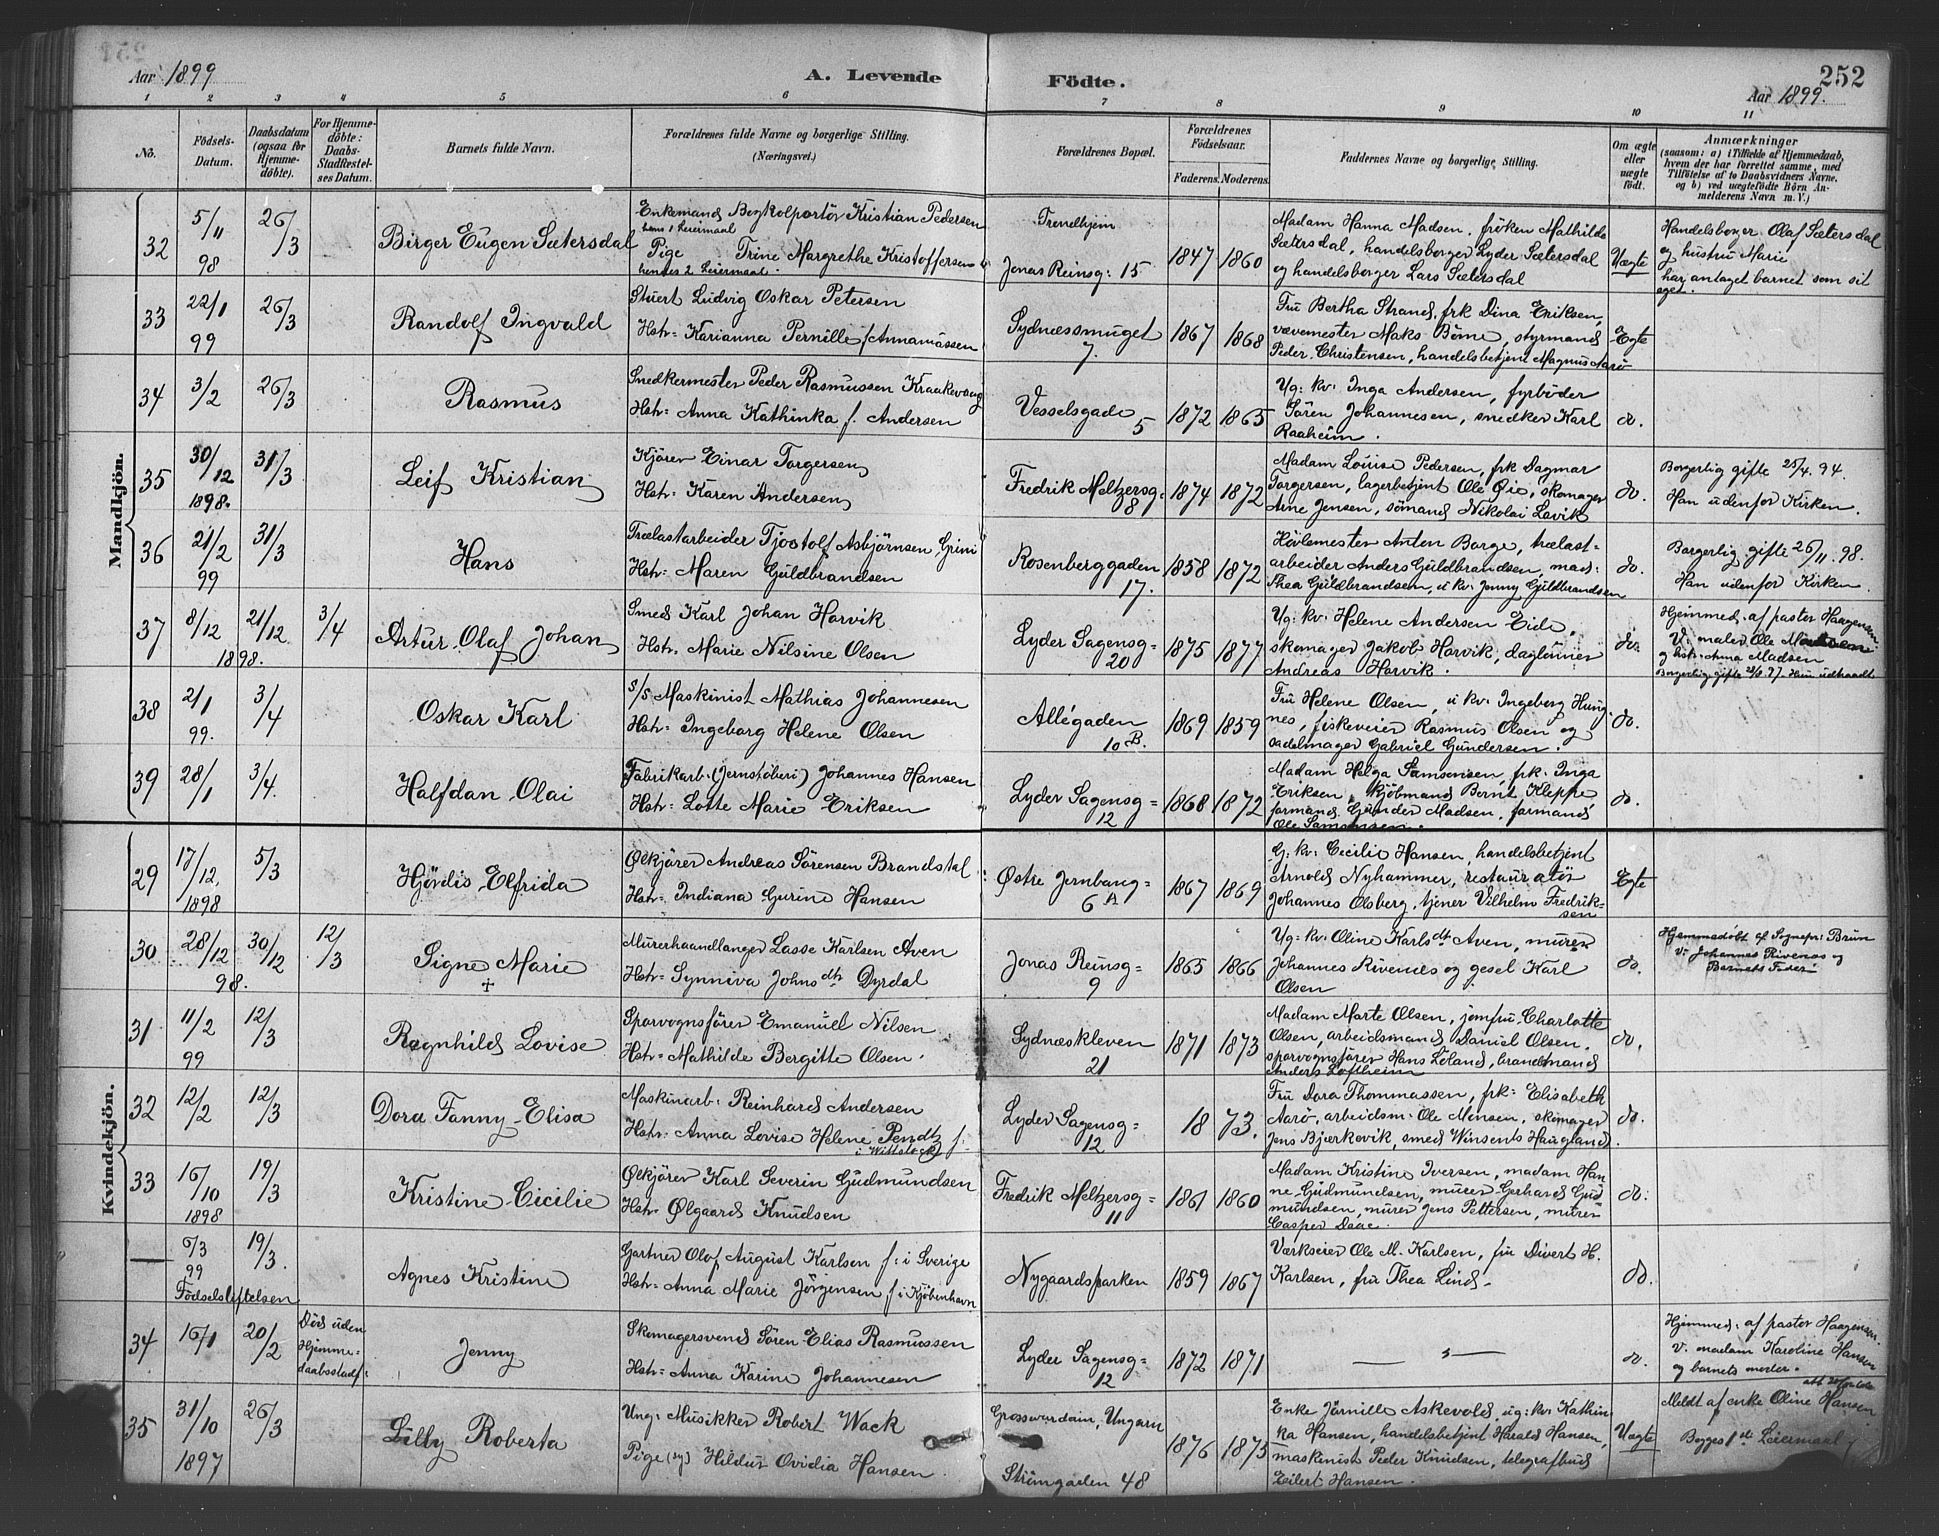 252
Aar 1899
A. Levende Födte.
Aar 1899.
1 2 3 4 5 6 7 8 9 10 11
No.
Födsels-Datum.
Daabsdatum (ogsaa for Hjemme-döbte).
For Hjemme-döbte: Daabs-Stadfæstel-ses Datum.
Barnets fulde Navn.
Forældrenes fulde Navne og borgerlige Stilling. (Næringsvei.)
Forældrenes Bopæl.
Forældrenes Födselsaar.
Faderens. Moderens.
Faddernes Navne og borgerlige Stilling.
Om ægte eller uægte födt.
Anmærkninger
(saasom: a) i Tilfælde af Hjemmedaab, hvem der har forrettet samme, med Tilföielse af to Daabsvidners Navne, og b) ved uægtefödte Börn An-melderens Navn m. V.)
Mandkjön.
32 5/11 98 26/3
Birger Eugen Sætersdal
Enkemand Bogkolportør Kristian Pedersen
hans 1 Leiermaal
Pige Trine Margrethe Kristoffersen
hendes 2 Leiermaal.
Trondhjem
Jonas Reinsg: 15
1847 1860
Madam Hanna Madsen, frøken Mathilde
Sætersdal, handelsborger Lyder Sætersdal
og handelsborger Lars Sætersdal
Uægte
Handelsborger Olaf Sætersdal
og hustru Marie
har antaget barnet som sit
eget.
33 22/1 99 26/3
Randolf Ingvald
Stuert Ludvig Oskar Petersen
Hstr: Karianna Pernille f Annamassen
Sydnæssmuget
7.
1867 1868
Fru Bertha Strand, frk Dina Eriksen,
vævemester Maks Börne, styrmand
Peder Christensen, handelsbetjent Magnus Aarö
Egte
34 3/2 26/3
Rasmus
Snedkermester Peder Rasmussen Kraakevaag
Hstr: Anna Kathinka f. Andersen
Vesselsgade
5
1872 1865
Ug: kv: Inga Andersen, fyrböder
Sören Johannesen, snedker Karl
Raaheim.
do.
35 30/12 1898. 31/3
Leif Kristian
Kjörer Einar Torgersen
Hstr: Karen Andersen
Fredrik Meltzersg:
8
1874 1872
Madam Louise Pedersen, frk Dagmar
Torgersen, lagerbetjent Ole Øie, skomager
Arne Jensen, sömand Nikolai Lavik
do.
Borgerlig gifte 25/4. 94.
Han udenfor Kirken.
36 21/2 99 31/3
Hans
Trælastarbeider Tjostolf Asbjörnsen Grini
Hstr: Maren Guldbrandsen
Rosenberggaden
17.
1858 1872
Hövlemester Anton Borge, trælast=
arbeider Anders Guldbrandsen, mad:
Thea Guldbrandsen, u kv: Jenny Guldbrandsen
do.
Borgerlig gifte 26/11 98.
Han udenfor Kirken
37 8/12 21/12 1898. 3/4
Artur Olaf Johan
Smed Karl Johan Harvik
Hstr: Marie Nilsine Olsen
Lyder Sagensg=
20
1875 1877
Ug: kv: Helene Andersen Eide,
skomager Jakob Harvik, daglönner
Andreas Harvik.
do.
Hjemmed. af pastor Haagensen
V: maler Ole
og hstr: Anna Madsen
38 2/1 99. 3/4
Oskar Karl
S/S Maskinist Mathias Johannesen
Hstr: Ingeborg Helene Olsen
Allégaden
10 B.
1869 1859
Fru Helene Olsen, u kv: Ingeborg Hung
nes, fiskeveier Rasmus Olsen og
sadelmager Gabriel Gundersen.
do.
39 28/1 3/4.
Halfdan Olai
Fabrikarb. (Jernstöberi) Johannes Hansen
Hstr: Lotte Marie Eriksen
Lyder Sagensg=
12
1868 1872
Madam Helga Samsonsen, frk. Inga
Eriksen, Kjöbmand Bernt Kleppe
formand Gunder Madsen, formand
Ole Samsonsen.
do.
Kvindekjön.
29 17/12 1898 5/3
Hjördis Elfrida
Ølkjörer Andreas Sörensen Brandstal
Hstr: Indiana Gurine Hansen
Østre Jernbaneg=
6 A
1867 1869
G: kv: Cecilie Hansen, handelsbetjent
Arnold Nyhammer, restauratör
Johannes Olsberg, tjener Vilhelm Fredrik-
sen
Egte
30 28/12 30/12 98. 12/3
Signe Marie
+
Murerhaandlanger Lasse Karlsen Aven
Hstr: Synniva Johns dtr Dyrdal
Jonas Reinsg=
9
1865 1866
Ug: kv: Oline Karls dtr Aven, murer
Johannes Rivenes og gesel Karl
Olsen
do.
Hjemmedöbt af Sognepr: Brun
V: Johannes Rivenes og
Barnets Fader
31 11/2 99 12/3
Ragnhild Lovise
Sporvognsförer Emanuel Nilsen
Hstr: Mathilde Bergitte Olsen.
Sydneskleven
21
1871 1873
Madam Marte Olsen, jomfru Charlotte
Olsen, arbeidsmand Daniel Olsen,
sporvognsförer Hans Leland, brandmand
Anders Loftheim
do.
32 12/2 12/3
Dora Fanny Elisa
Maskinarb. Reinhard Andersen
Hstr: Anna Lovise Helene Pendtz f.
i Wittstock
Lyder Sagensg=
12
1873.
Fru Dora Thommassen, frk: Elisabeth
Aarö, arbeidsm. Ole Monsen, skomager
Jens Bjerkevik, smed Winsents Haugland.
do.
33 16/10 1898 19/3
Kristine Cicilie
Ølkjörer Karl Severin Gudmundsen
Hstr: Ølgaard Knudsen
Fredrik Meltzersg=
11
1861 1860
Madam Kristine Iversen, madam Han
ne Gudmundsen, murer Gerhard Gud
mundsen, murer Jens Pettersen, murer
Casper Daae.
do.
— 6/3 99 19/3.
Födselsstiftelsen
Agnes Kristine
Gartner Olof August Karlsen f: i Sverige
Hstr: Anna Marie Jörgensen f. i Kjöbenhavn
Nygaardsparken
1859 1867
Værkseier Ole M. Karlsen, fru Divert H.
Karlsen, fru Thea Lind.
do.
34 16/1 20/2
Död uden
Hjemme=
daabsstadf:
Jenny
Skomagersvend Sören Elias Rasmussen
Hstr: Anna Karine Johannesen
Lyder Sagensg=
12
1872 1871
do.
Hjemmed: af pastor Haagensen.
V. madam Karoline Hansen
og barnets moder.
35 31/10 1897 26/3
Lilly Roberta
Ung: Musikker Robert Wack
Pige (sy) Hildur Ovidia Hansen.
Grosswardain, Ungarn
Strömgaden 48
1876 1875
Enke Jörnille Askevold, ug: kv: Kathin
ka Hansen, handelsbetjent Harald Hansen,
maskinist Peder Knudsen, telegrafbud
Eilert Hansen.
Uægte
Meldt af enke Oline Hansen
Begges 1st Leiermaal